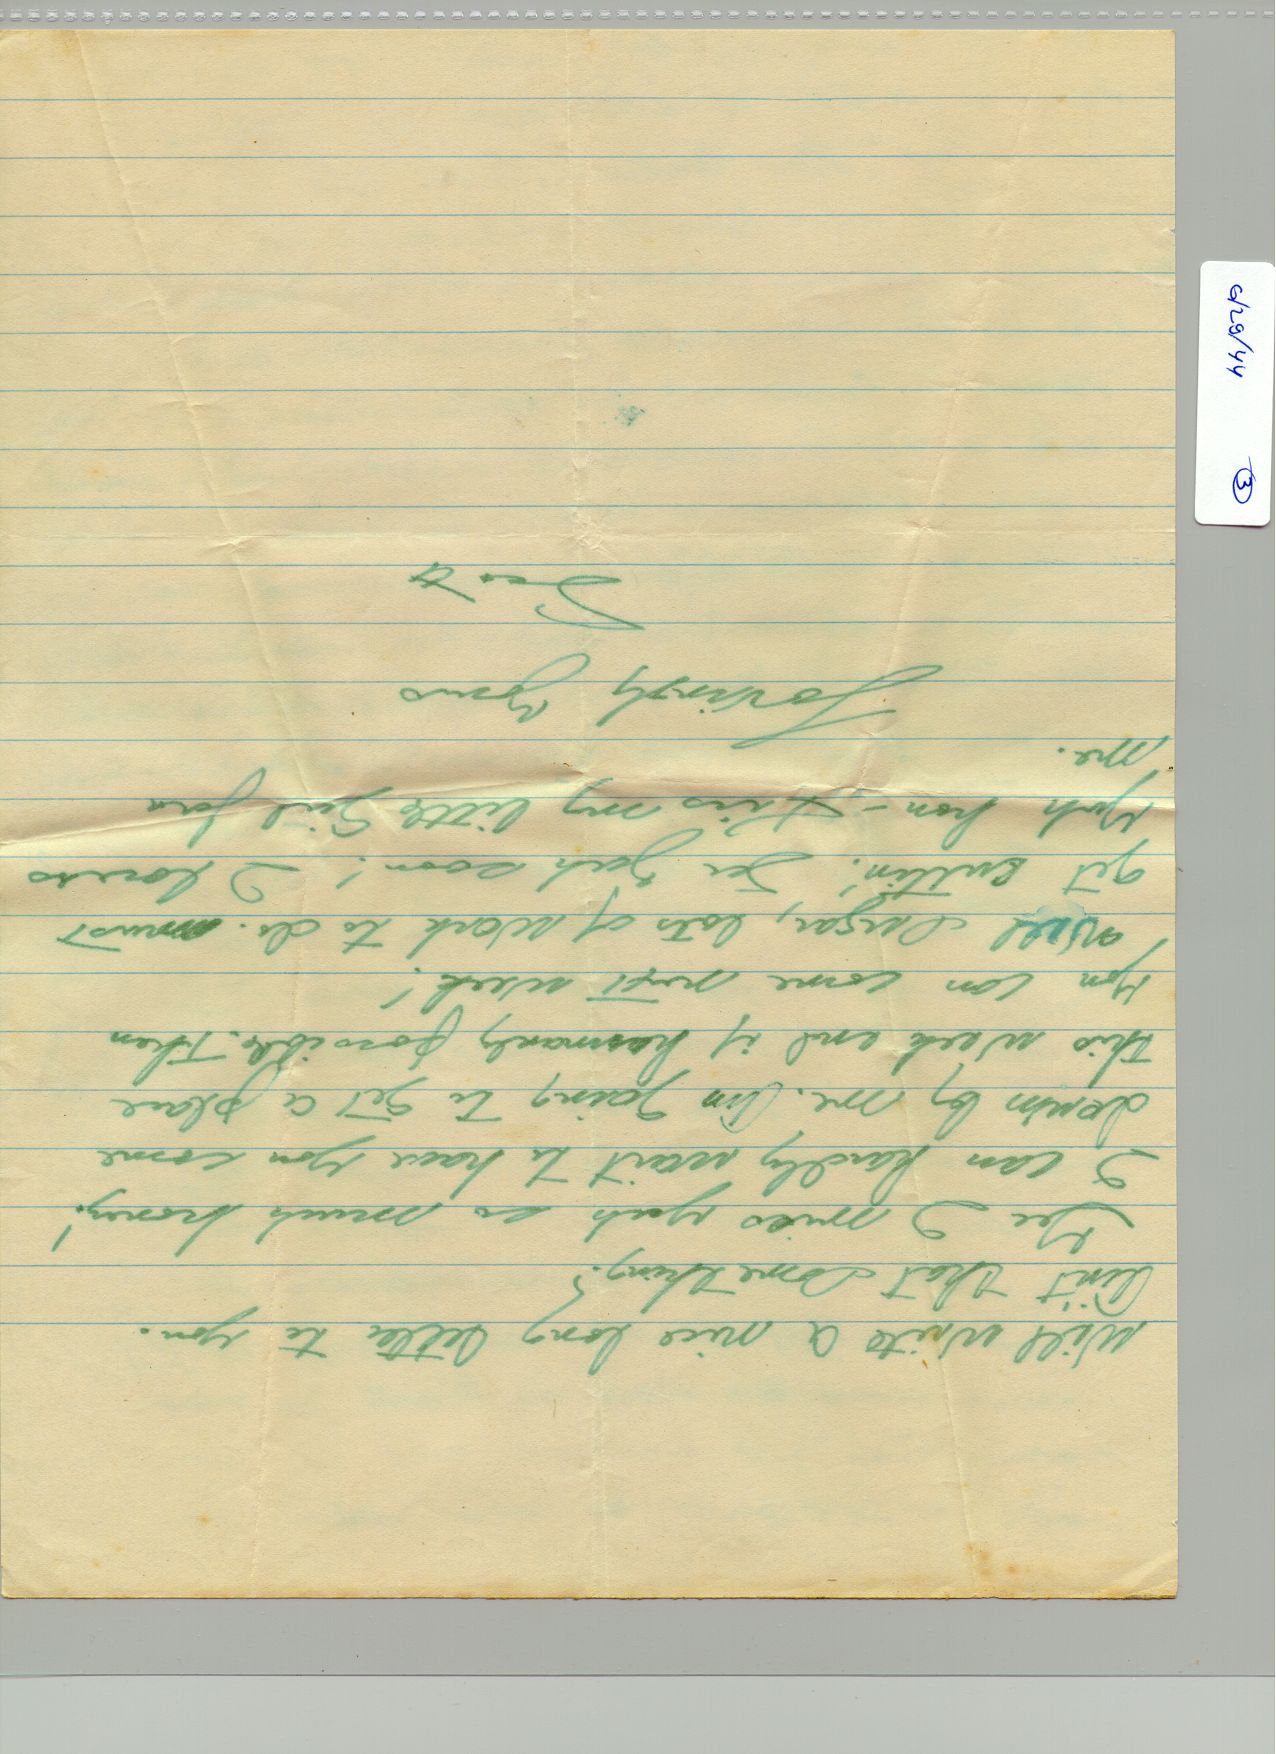 Will write a nice long letter to you.
Ain't that something?
Gee I miss yuh so much honey!
I can hardly wait to have you come
down by me. Am going to get a place
this week end if humanly possible. Then
you can come next week!
Well Sugar, lots of work to do. must
get cuttin'. See yuh soon! I loves
yuh hon - this my little Girl for
me.
Lovingly Yours
Scott
6/29/44
3